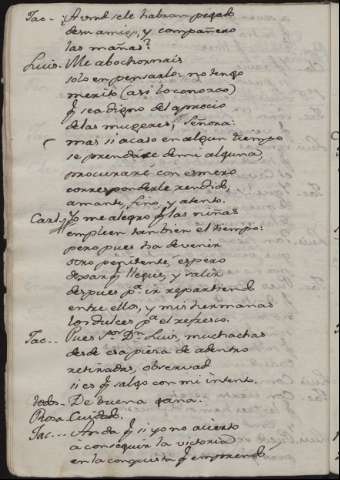 Jac- ¿Avmd se le habran pegado
desus amigos, y compañero
las mañas?
Luis- Me abochornais
solo en pensarlo, no tengo
merito (asi lo conozco)
q̃ sea digno del aprecio
de las mugeres, Señora:
mas si acaso en algun tiempo
se prendase de mi alguna,
procurare con esmero
corresponderle rendido,
amante, fino, y atento.
Carl. Yo me alegro q̃ las niñas
empleen tambien el tiempo:
pero pues ha de venir
otro penitente, espero
dexar q̃ llegue, y salir
despues pª. ir repartiendo
entre ellos, y mis hermanas
los dulces pª. el refresco.
Jac.. Pues Sor. Dn. Luis, muchachas
desde esa pieza de adentro
retiradas, observad
si es q̃ salgo con mi intento.
todos. De buena gana.
Rosa. Cuidado.
Jac... Anda q̃ si yo no acierto
a conseguir la victoria
en la conquista q̃ emprendo